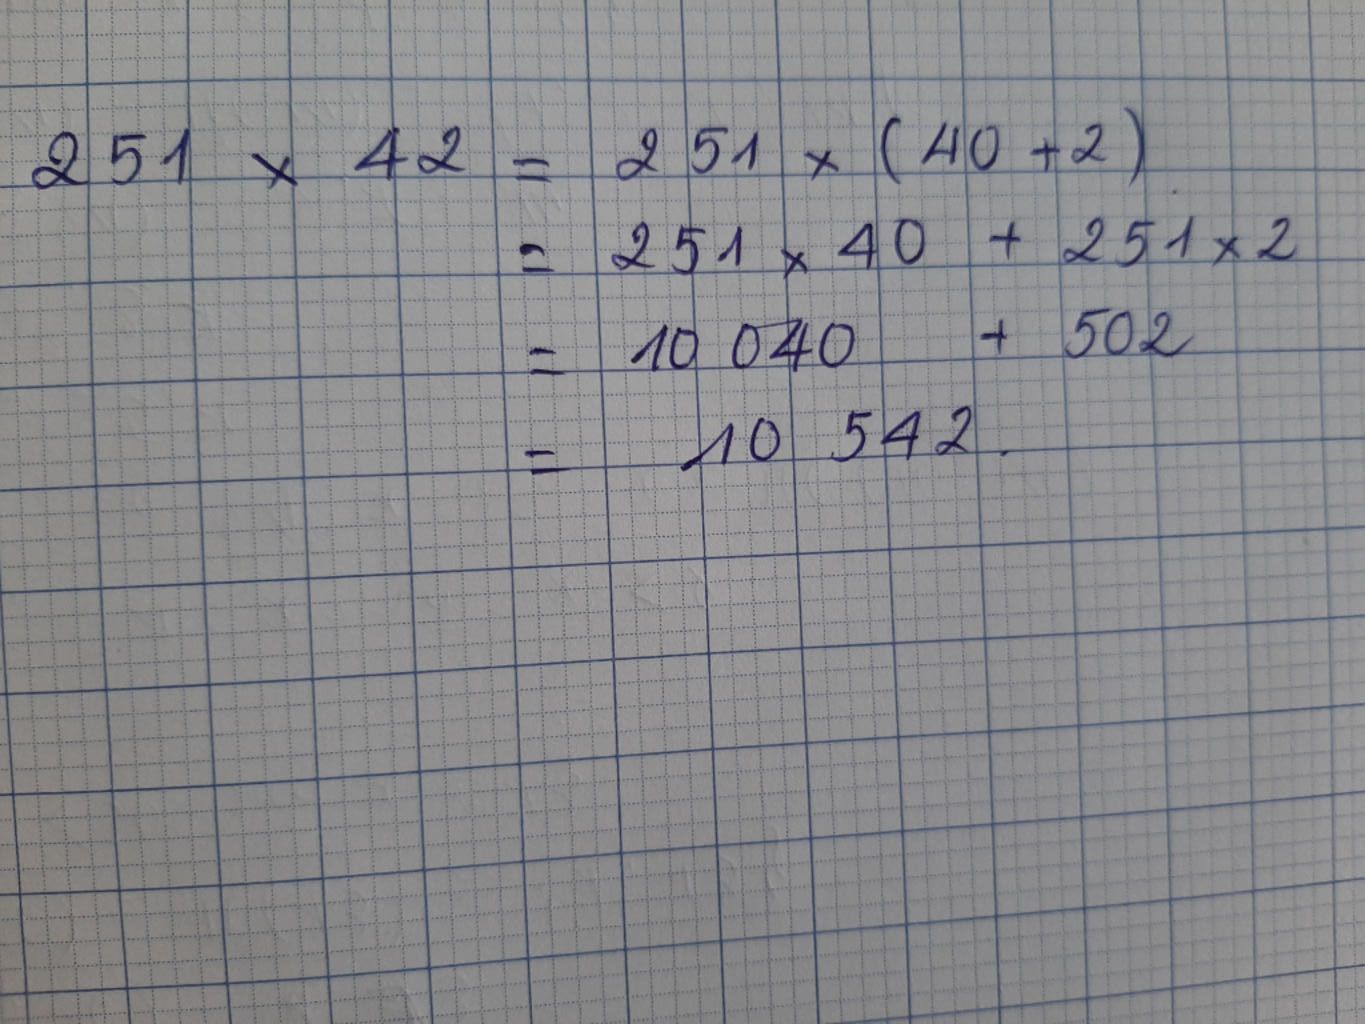 251 × 42 = 251 × (40 + 2)
= 251 × 40 + 251 × 2
= 10 040 + 502
= 10 542.